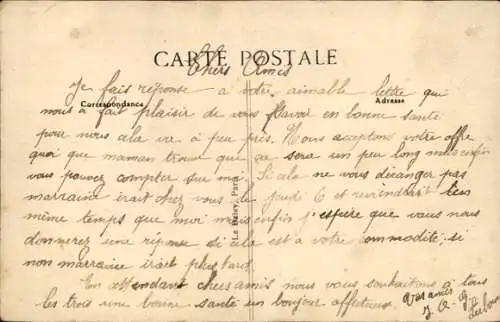 CARTE POSTALE
Chers Amis
Correspondance
Adresse
Je fais réponse a votre aimable lettre qui
nous a fait plaisir de vous savoir en bonne santé
pour nous ala va a peu près. Nous acceptons votre offre
quoi que maman trouve que ça sera un peu long mais enfin
vous pouvez compter sur moi. Si ala ne vous déranger pas
marraine irait chez vous le jeudi 6 et reviendrait
même temps que moi mais enfin j'espère que vous nous
donnerez une réponse si cela est a votre commodité, si
non marraine irait plus tard.
En attendant chers amis nous vous souhaitons a tous
les trois une bonne santé un bonjour affectueux
Vos amis
Le Deley, Paris